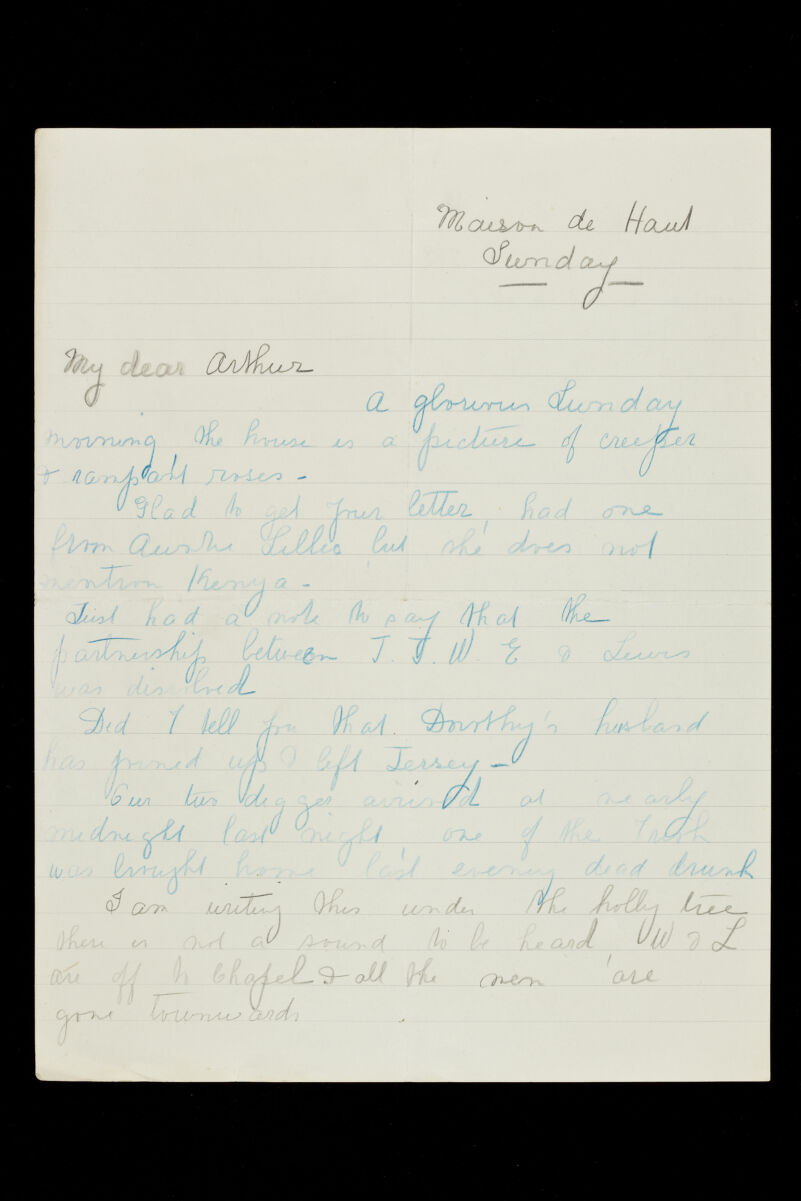 Maison de Haut
Sunday
My dear Arthur
A glorious Sunday
morning the house is a picture of creeper
& rampant roses -
Glad to get your letter, had one
from Auntie Lillie but she does not
mention Kenya -
Just had a note to say that the
partnership between J. J. W. E & Lewis
was dissolved
Did I tell you that Dorothy's husband
has joined up & left Jersey -
Our digger arrived at nearly
midnight last night, one of the Irish
was brought home last evening dead drunk
I am writing this under the holly tree
there is not a sound to be heard, W & L
are off to Chapel & all the men are
gone townwards